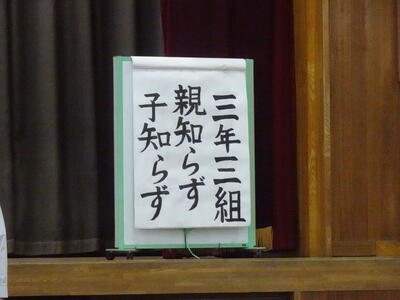 三年三組
親知らず
子知らず